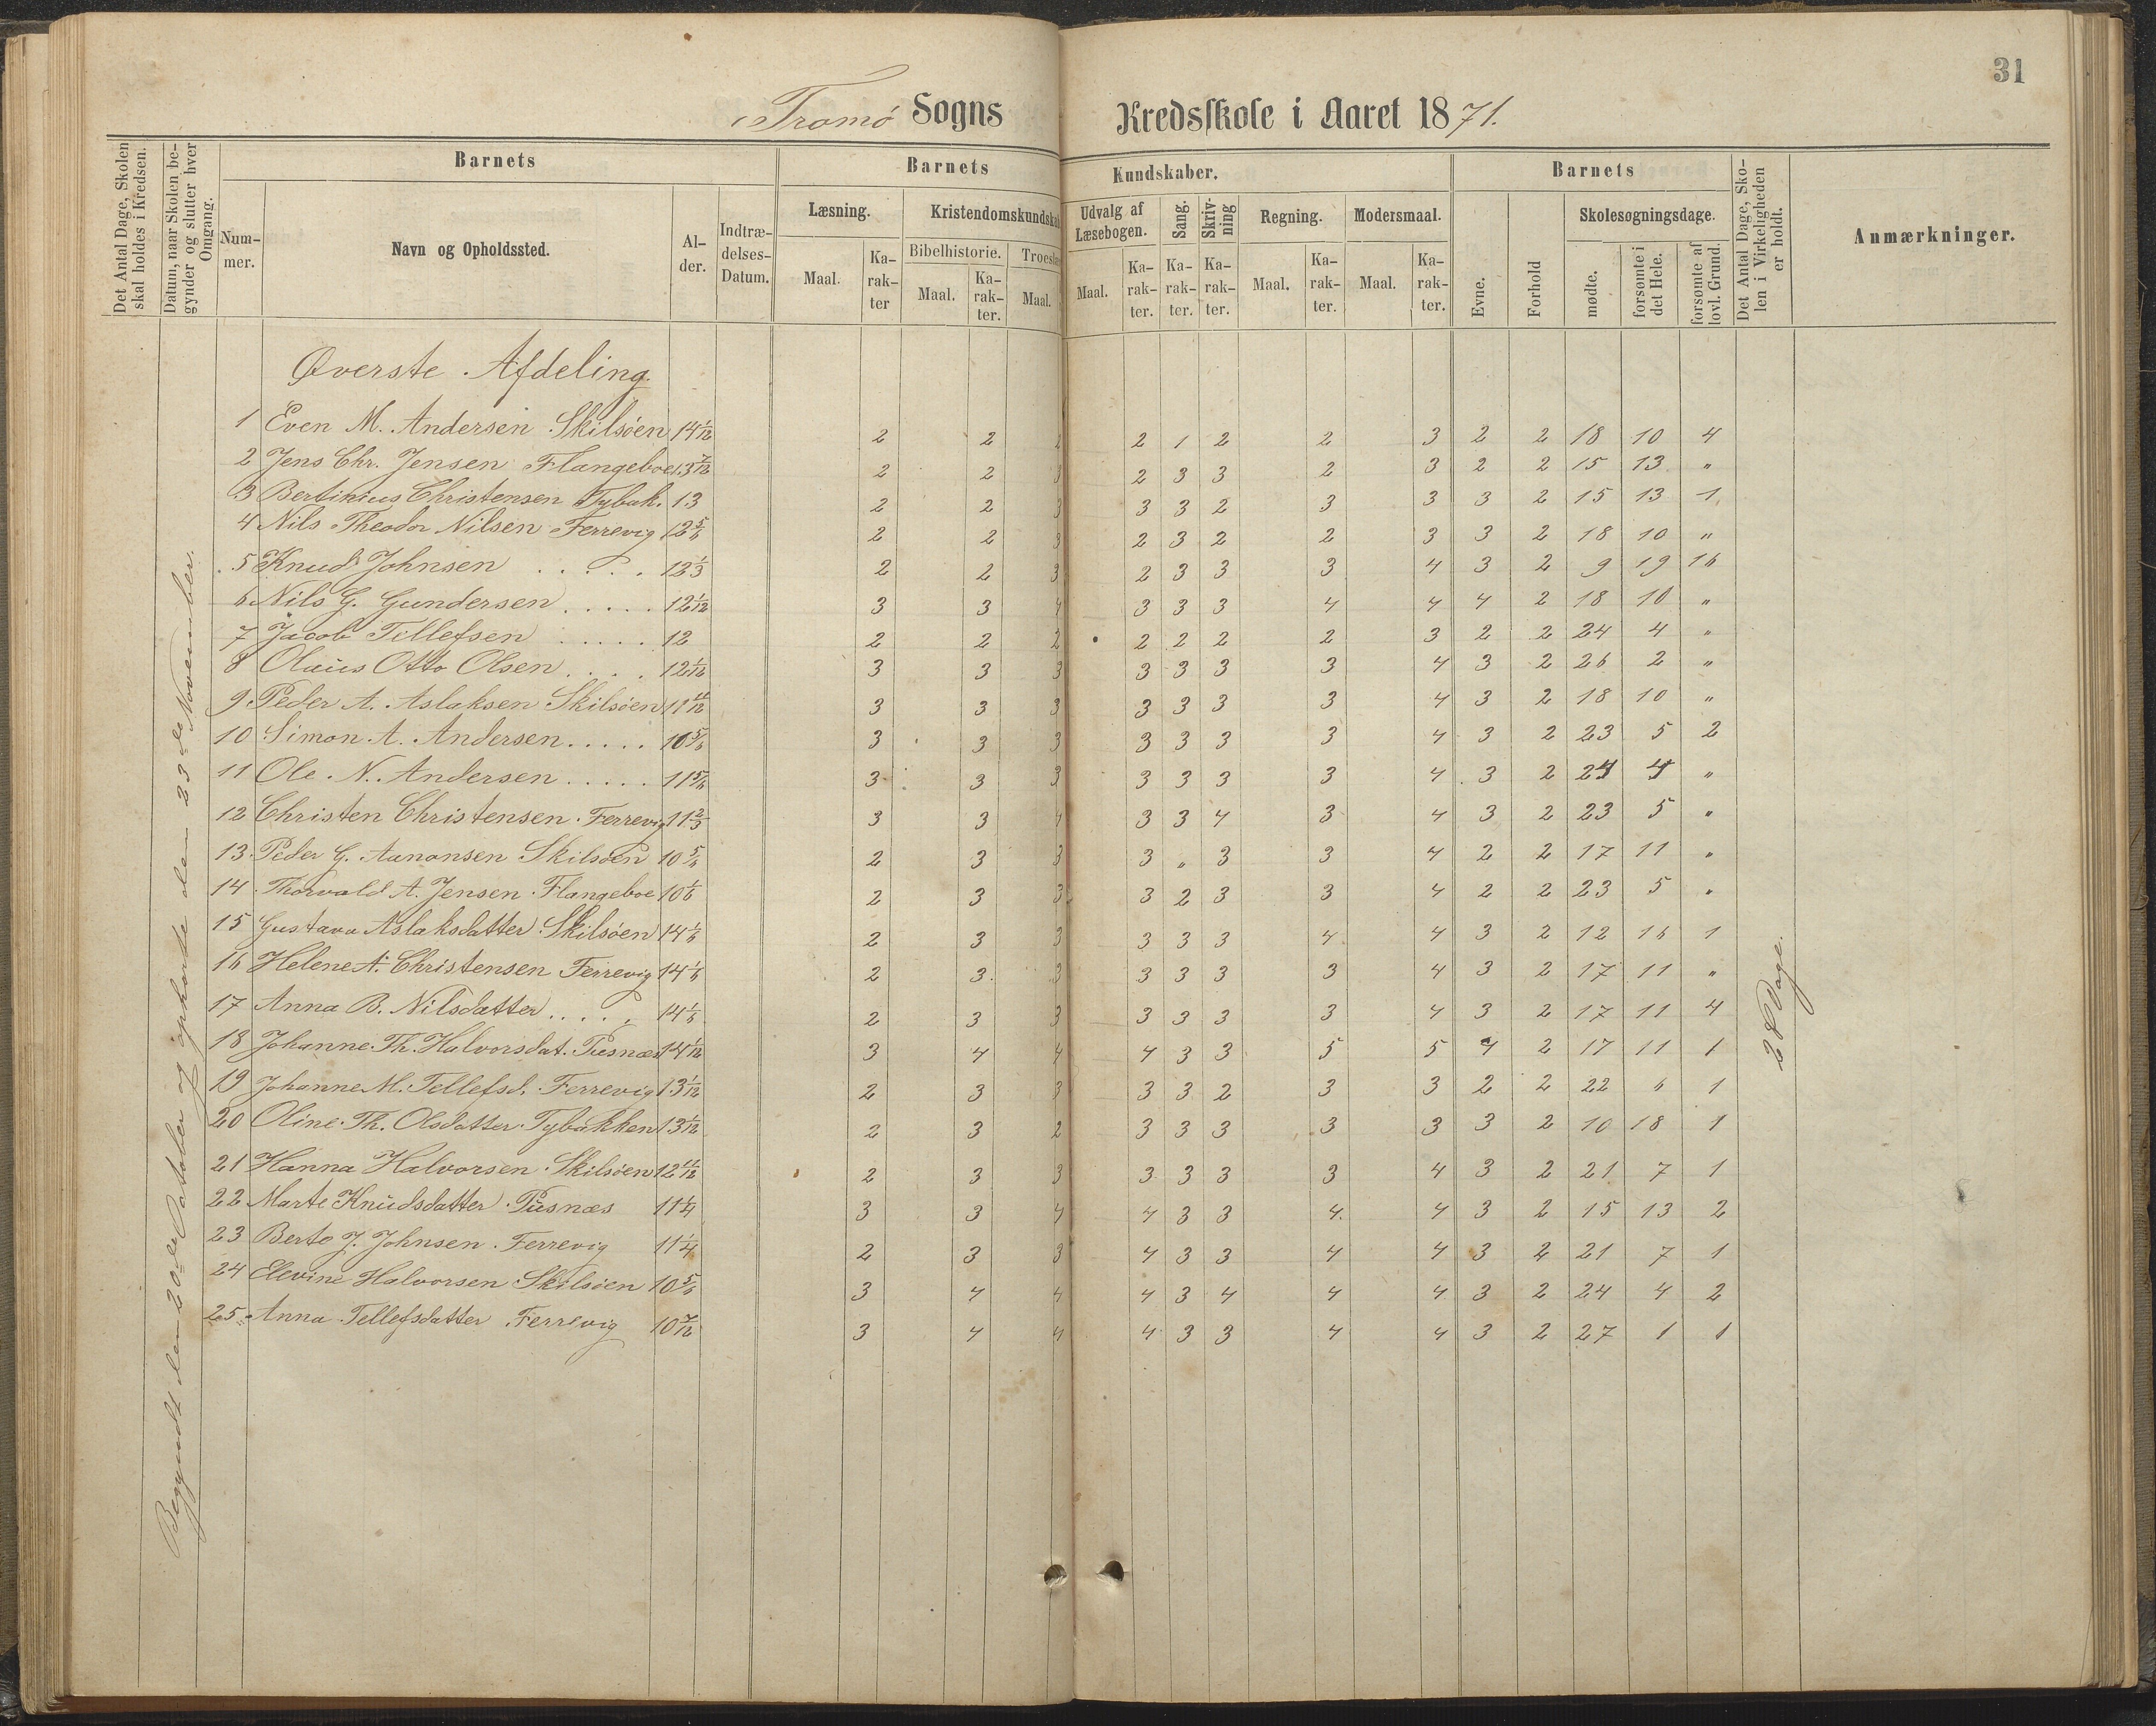 31
Tromö Sogns Kredsskole i Aaret 1871.
Det Antal Dage, Skolen skal holdes i Kredsen.
Datum, naar Skolen begynder og slutter hver Omgang.
Barnets
Nummer.
Navn og Opholdssted.
Alder.
Indtrædelses-Datum.
Barnets Kundskaber.
Læsning.
Maal. Karakter
Kristendomskundskab
Bibelhistorie.
Maal. Karakter.
Troeslære
Maal.
Udvalg af Læsebogen.
Maal. Karakter.
Sang. Karakter.
Skrivning Karakter.
Regning.
Maal. Karakter.
Modersmaal.
Maal. Karakter.
Barnets
Evne.
Forhold
Skolesøgningsdage.
mødte.
forsømte i det Hele.
forsømte af lovl. Grund.
Det Antal Dage, Skolen i Virkeligheden er holdt.
Anmærkninger.
Begyndt den 20de October og ophørte den 23de November.
Øverste Afdeling.
1 Even M. Andersen Skilsöen 14 1/12 2 2 2 2 1 2 2 3 2 2 18 10 4
2 Jens Chr. Jensen Flangeboe 13 7/12 2 2 3 2 3 3 2 3 2 2 15 13 "
3 Bertinius Christensen Tybak. 13 2 2 3 3 3 2 3 3 3 2 15 13 1
4 Nils Theodor Nilsen Ferrevig 12 5/6 2 2 3 2 3 2 2 3 3 2 18 10 "
5 Knud Johnsen . . . . . 12 1/3 2 2 3 2 3 3 3 4 3 2 9 19 16
6 Nils G. Gundersen . . . . . 12 1/12 3 3 4 3 3 3 4 4 4 2 18 10 "
7 Jacob Tellefsen . . . . . 12 2 2 2 2 2 2 2 3 2 2 24 4 "
8 Olaus Otto Olsen . . . . 12 1/12 3 3 3 3 3 3 3 4 3 2 26 2 "
9 Peder A. Aslaksen Skilsöen 11 11/12 3 3 3 3 3 3 3 4 3 2 18 10 "
10 Simon A. Andersen . . . . . 10 5/6 3 3 3 3 3 3 3 4 3 2 23 5 2
11 Ole N. Andersen . . . . . 11 5/6 3 3 3 3 3 3 3 4 3 2 24 4 "
12 Christen Christensen Ferrevig 11 2/3 3 3 4 3 3 4 3 4 3 2 23 5 "
13 Peder G. Aanonsen Skilsöen 10 5/6 2 3 3 3 " 3 3 4 2 2 17 11 "
14 Thorvald A. Jensen Flangeboe 10 1/6 2 3 3 3 2 3 3 4 2 2 23 5 "
15 Gustava Aslaksdatter Skilsöen 14 1/6 2 3 3 3 3 3 4 4 3 2 12 16 1
16 Helene A. Christensen Ferrevig 14 1/6 2 3 3 3 3 3 3 4 3 2 17 11 "
17 Anna B. Nilsdatter . . . . . 14 1/6 2 3 3 3 3 3 3 4 3 2 17 11 4
18 Johanne Th. Halvorsdat. Pusnæs 14 1/12 3 4 4 4 3 3 5 5 4 2 17 11 1
19 Johanne M. Tellefsd. Ferrevig 13 1/12 2 3 3 3 3 2 3 3 2 2 22 6 1
20 Oline Th. Olsdatter Tybakken 13 1/12 2 3 2 3 3 3 3 3 3 2 10 18 1
21 Hanna Halvorsen Skilsöen 12 11/12 2 3 3 3 3 3 3 4 3 2 21 7 1
22 Marte Knudsdatter Pusnæs 11 1/4 3 3 4 4 3 3 4 4 3 2 15 13 2
23 Berte J. Johnsen Ferrevig 11 1/4 2 3 3 4 3 3 4 4 3 2 21 7 1
24 Elevine Halvorsen Skilsöen 10 5/6 3 4 4 4 3 4 4 4 3 2 24 4 2
25 Anna Tellefsdatter Ferrevig 10 7/12 3 4 4 4 3 3 4 4 3 2 27 1 1
28 Dage.